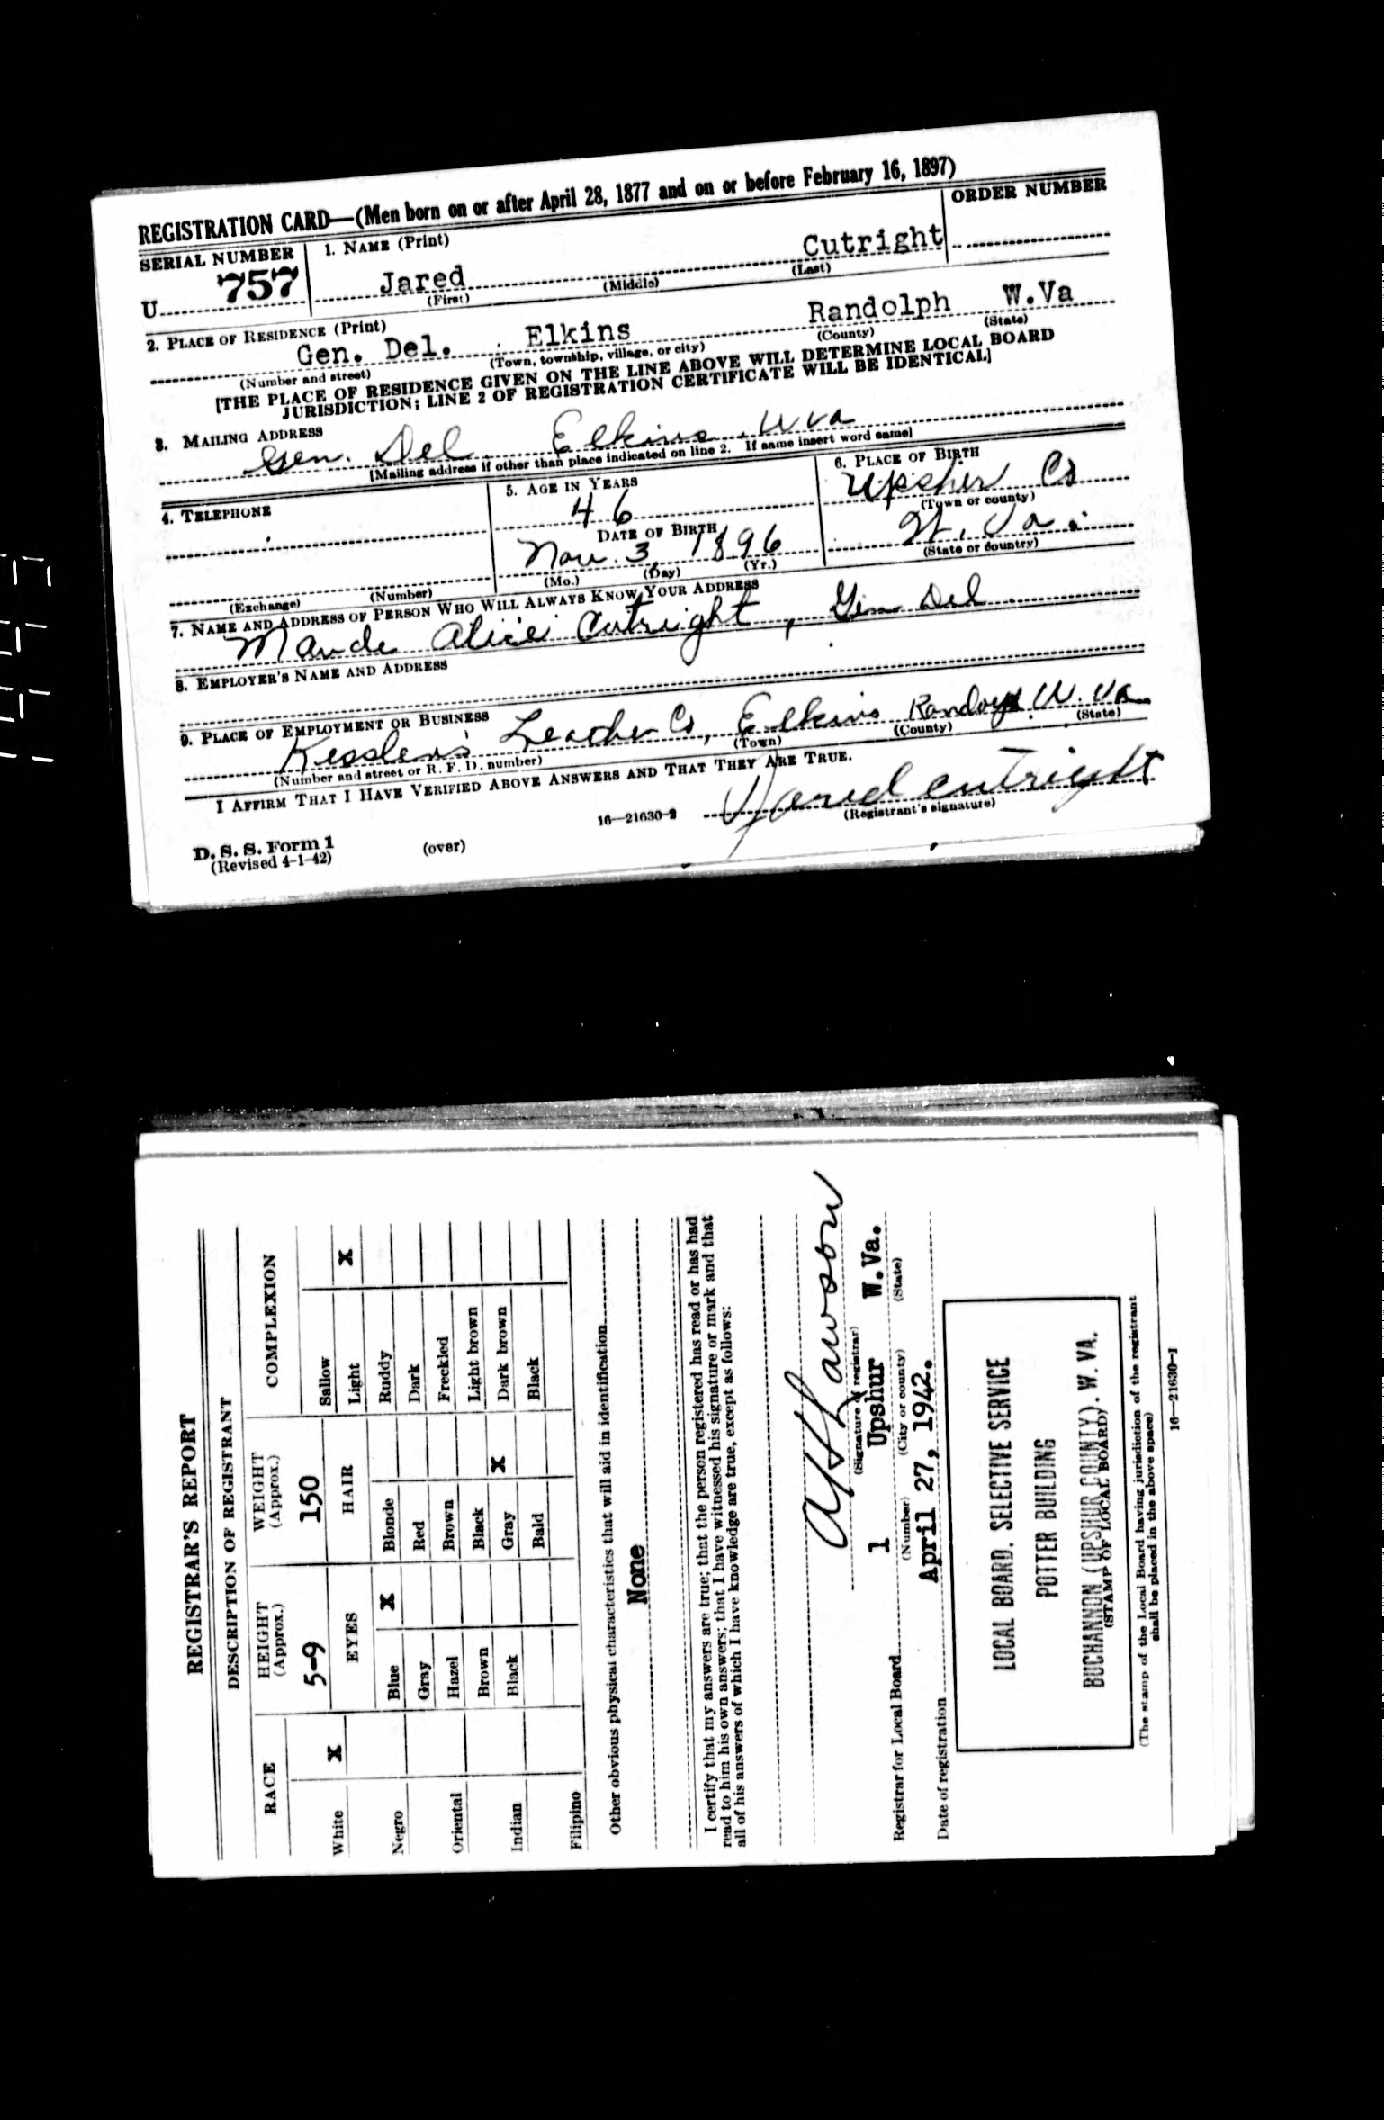 REGISTRATION CARD—(Men born on or after April 28, 1877 and on or before February 16, 1897)
SERIAL NUMBER
1. NAME (Print)
ORDER NUMBER
U 757
Jared Cutright
(First) (Middle) (Last)
2. PLACE OF RESIDENCE (Print)
Gen. Del. Elkins Randolph W.Va
(Number and street) (Town, township, village, or city) (County) (State)
[THE PLACE OF RESIDENCE GIVEN ON THE LINE ABOVE WILL DETERMINE LOCAL BOARD
JURISDICTION; LINE 2 OF REGISTRATION CERTIFICATE WILL BE IDENTICAL]
3. MAILING ADDRESS
Gen. Del. Elkins, W va
[Mailing address if other than place indicated on line 2. If same insert word same]
4. TELEPHONE
5. AGE IN YEARS
6. PLACE OF BIRTH
46
Upsher Co
(Town or county)
DATE OF BIRTH
Nov. 3 1896
W. Va.
(Exchange) (Number)
(Mo.) (Day) (Yr.)
(State or country)
7. NAME AND ADDRESS OF PERSON WHO WILL ALWAYS KNOW YOUR ADDRESS
Maude Alice Cutright, Gen Del
8. EMPLOYER'S NAME AND ADDRESS
9. PLACE OF EMPLOYMENT OR BUSINESS
Kesslers Leather Co, Elkins W. Va
(Number and street or R. F. D. number) (Town) (County) (State)
I AFFIRM THAT I HAVE VERIFIED ABOVE ANSWERS AND THAT THEY ARE TRUE.
Jared Cutright
D. S. S. Form 1
(Revised 4-1-42)
(over)
16—21630-2
(Registrant's signature)
REGISTRAR'S REPORT
DESCRIPTION OF REGISTRANT
RACE
HEIGHT (Approx.)
WEIGHT (Approx.)
COMPLEXION
5-9
150
Sallow
White X
EYES
HAIR
Light X
Negro
Blue X
Blonde
Ruddy
Gray
Red
Dark
Oriental
Hazel
Brown
Freckled
Brown
Black
Light brown
Indian
Black
Gray X
Dark brown
Bald
Black
Filipino
Other obvious physical characteristics that will aid in identification
None
I certify that my answers are true; that the person registered has read or has had
read to him his own answers; that I have witnessed his signature or mark and that
all of his answers of which I have knowledge are true, except as follows:
(Signature of registrar)
Registrar for Local Board 1 Upshur W.Va.
(Number) (City or county) (State)
Date of registration April 27, 1942.
LOCAL BOARD, SELECTIVE SERVICE
POTTER BUILDING
BUCHANNON (UPSHUR COUNTY), W. VA.
(STAMP OF LOCAL BOARD)
(The stamp of the Local Board having jurisdiction of the registrant
shall be placed in the above space)
16—21630-1